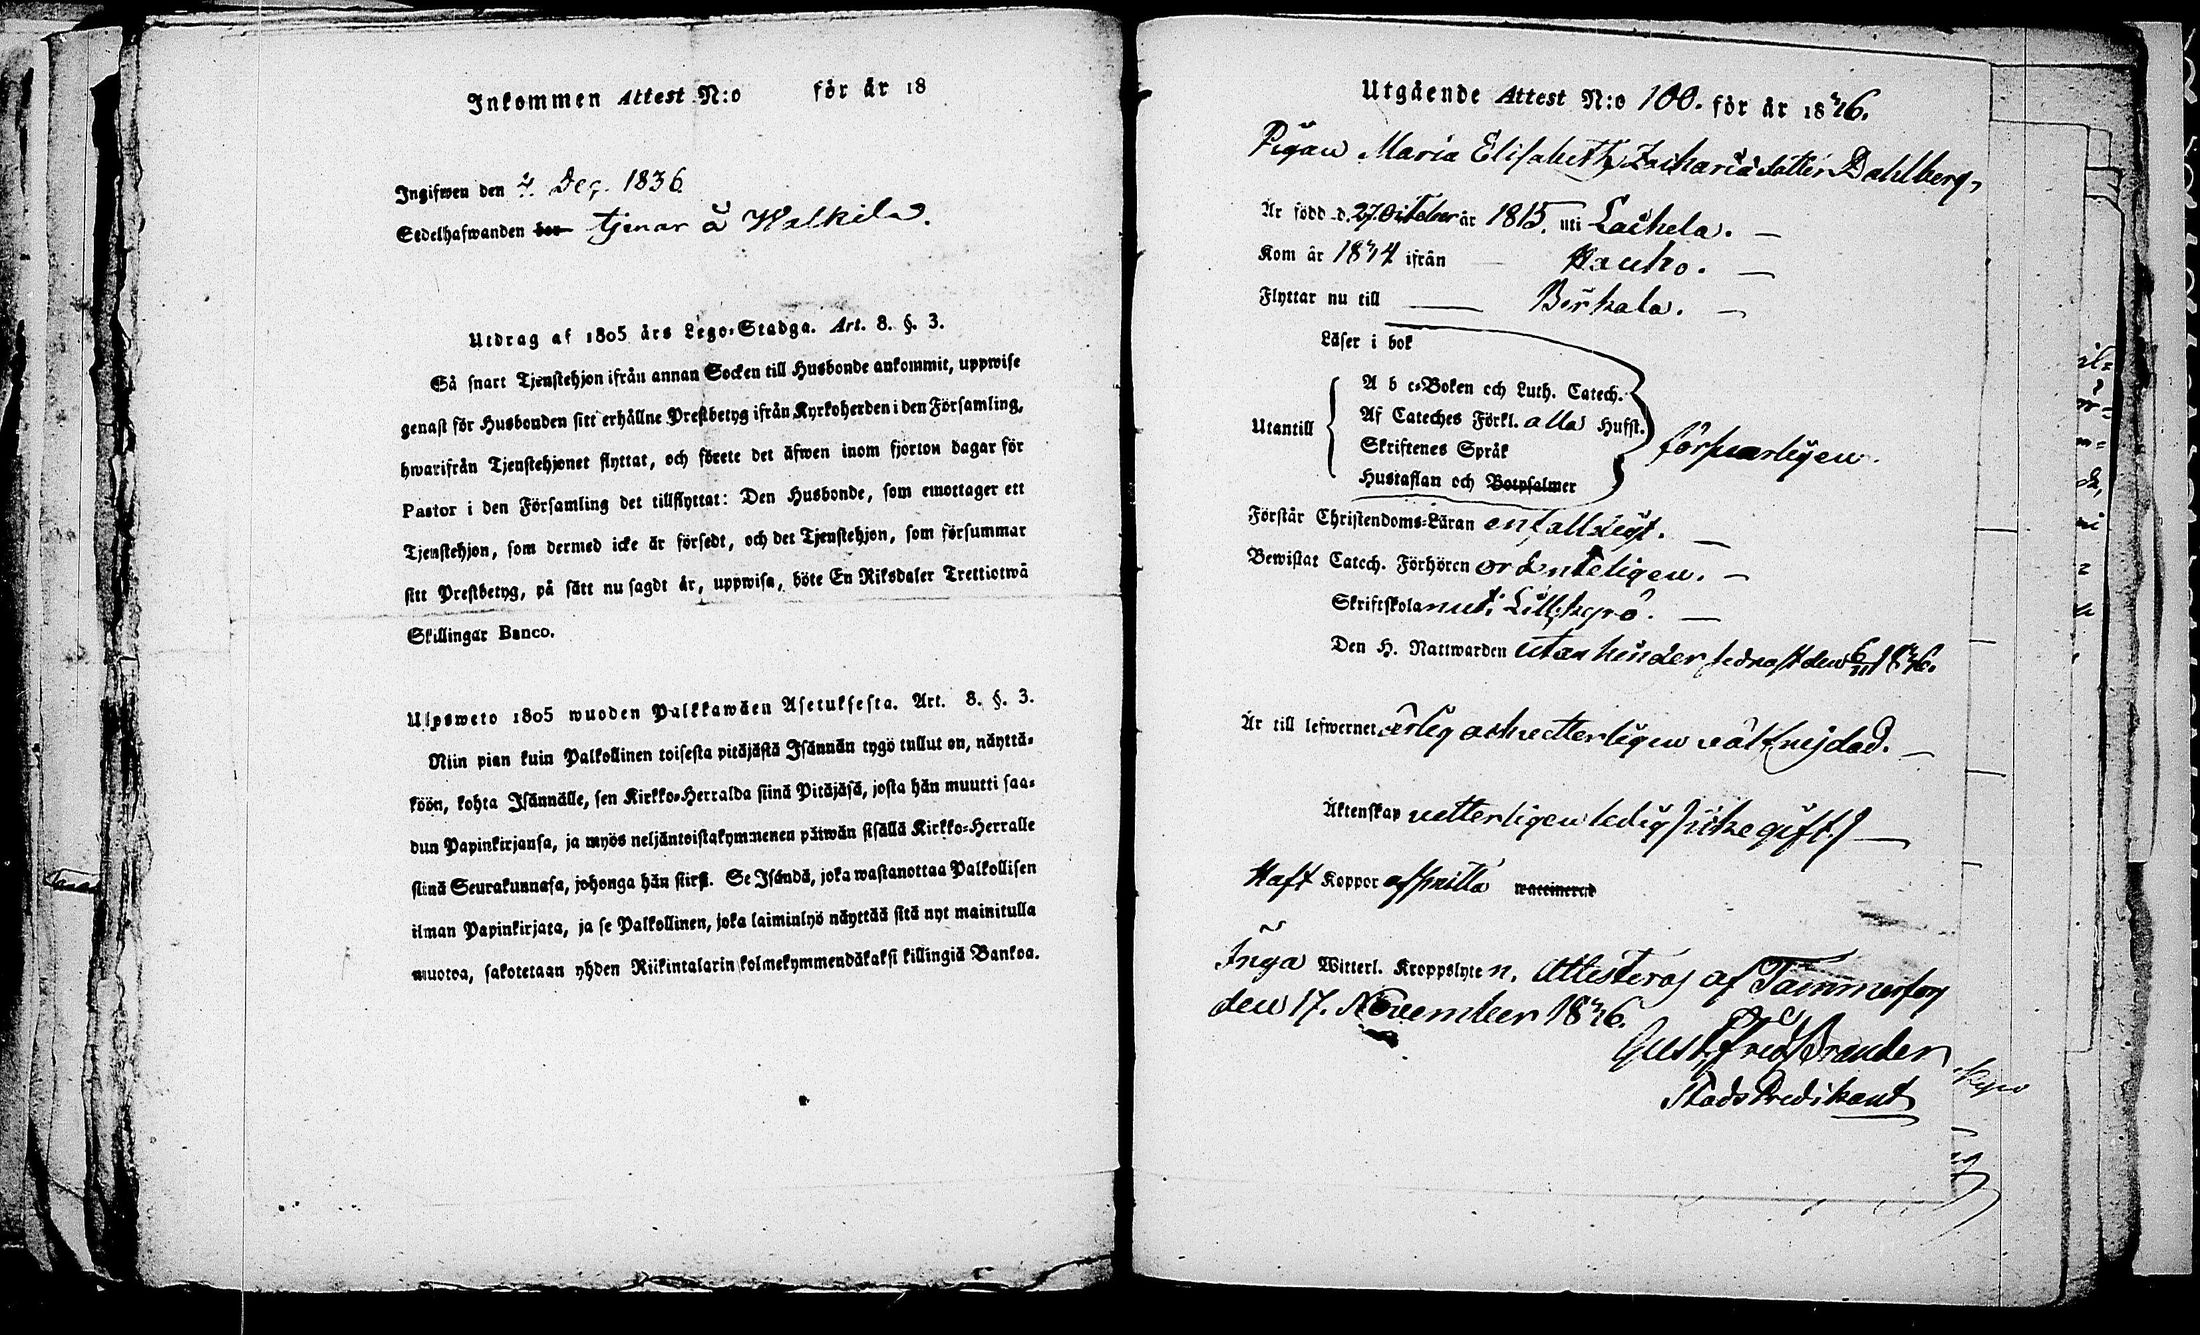 Inkommen Attest N:o för år 18
Ingifwen den 4. Dec. 1836
Sedelhafwanden bor tjenar å Walkila.
Utdrag af 1805 års Lego-Stadga. Art. 8. §. 3.
Så snart Tjenstehjon ifrån annan Socken till Husbonde ankommit, uppwise
genast för Husbonden sitt erhållne Prestbetyg ifrån Kyrkoherden i den Församling,
hwarifrån Tjenstehjonet flyttat, och förete det äfwen inom fjorton dagar för
Pastor i den Församling det tillflyttat: Den Husbonde, som emottager ett
Tjenstehjon, som dermed icke är försedt, och det Tjenstehjon, som försummar
sitt Prestbetyg, på sätt nu sagdt är, uppwisa, böte En Riksdaler Trettiotwå
Skillingar Banco.
Ulpsweto 1805 wuoden Palkkawäen Asetuksesta. Art. 8. §. 3.
Niin pian kuin Palkollinen toisesta pitäjästä Isännän tygö tullut on, näyttä-
köön, kohta Isännälle, sen Kirkko-Herralda siinä Pitäjäsä, josta hän muutti saa-
dun Papinkirjansa, ja myös neljäntoistakymmenen päiwän sisällä Kirkko-Herralle
siinä Seurakunnasa, johonga hän siirsi. Se Isändä, joka wastanottaa Palkollisen
ilman Papinkirjata, ja se Palkollinen, joka laiminlyö näyttää sitä nyt mainitulla
muotoa, sakotetaan yhden Riikintalarin kolmekymmendäkaksi killingiä Bankoa.
Utgående Attest N:o 100. för år 1836.
Pigan Maria Elisabeth Zachariædotter Dahlberg,
Är född d. 27. October år 1815. uti Laihela.
Kom år 1834 ifrån Wånho.
Flyttar nu till Birkala.
Läser i bok
A b c-Boken och Luth. Catech.
Utantill Af Cateches Förkl. alla Hufst. försvarligen.
Skriftenes Språk
Hustaflan och Botpsalmer
Förstår Christendoms-Läran enfalldigt.
Bewistat Catech. Förhören ordenteligen.
Skriftskolan uti Lillkyrö.
Den H. Nattwarden utan hinder sednast den 6/11 1836.
Är till lefwernet ärlig och vetterligen väl frejdad.
Äktenskap vetterligen ledig (icke gift)
Haft Koppor waccinerad
Inga Witterl. Kroppslyten. Attesteras af Tammerfors
den 17. November 1836.
Gust. Fred. Brander
StadsPredikant